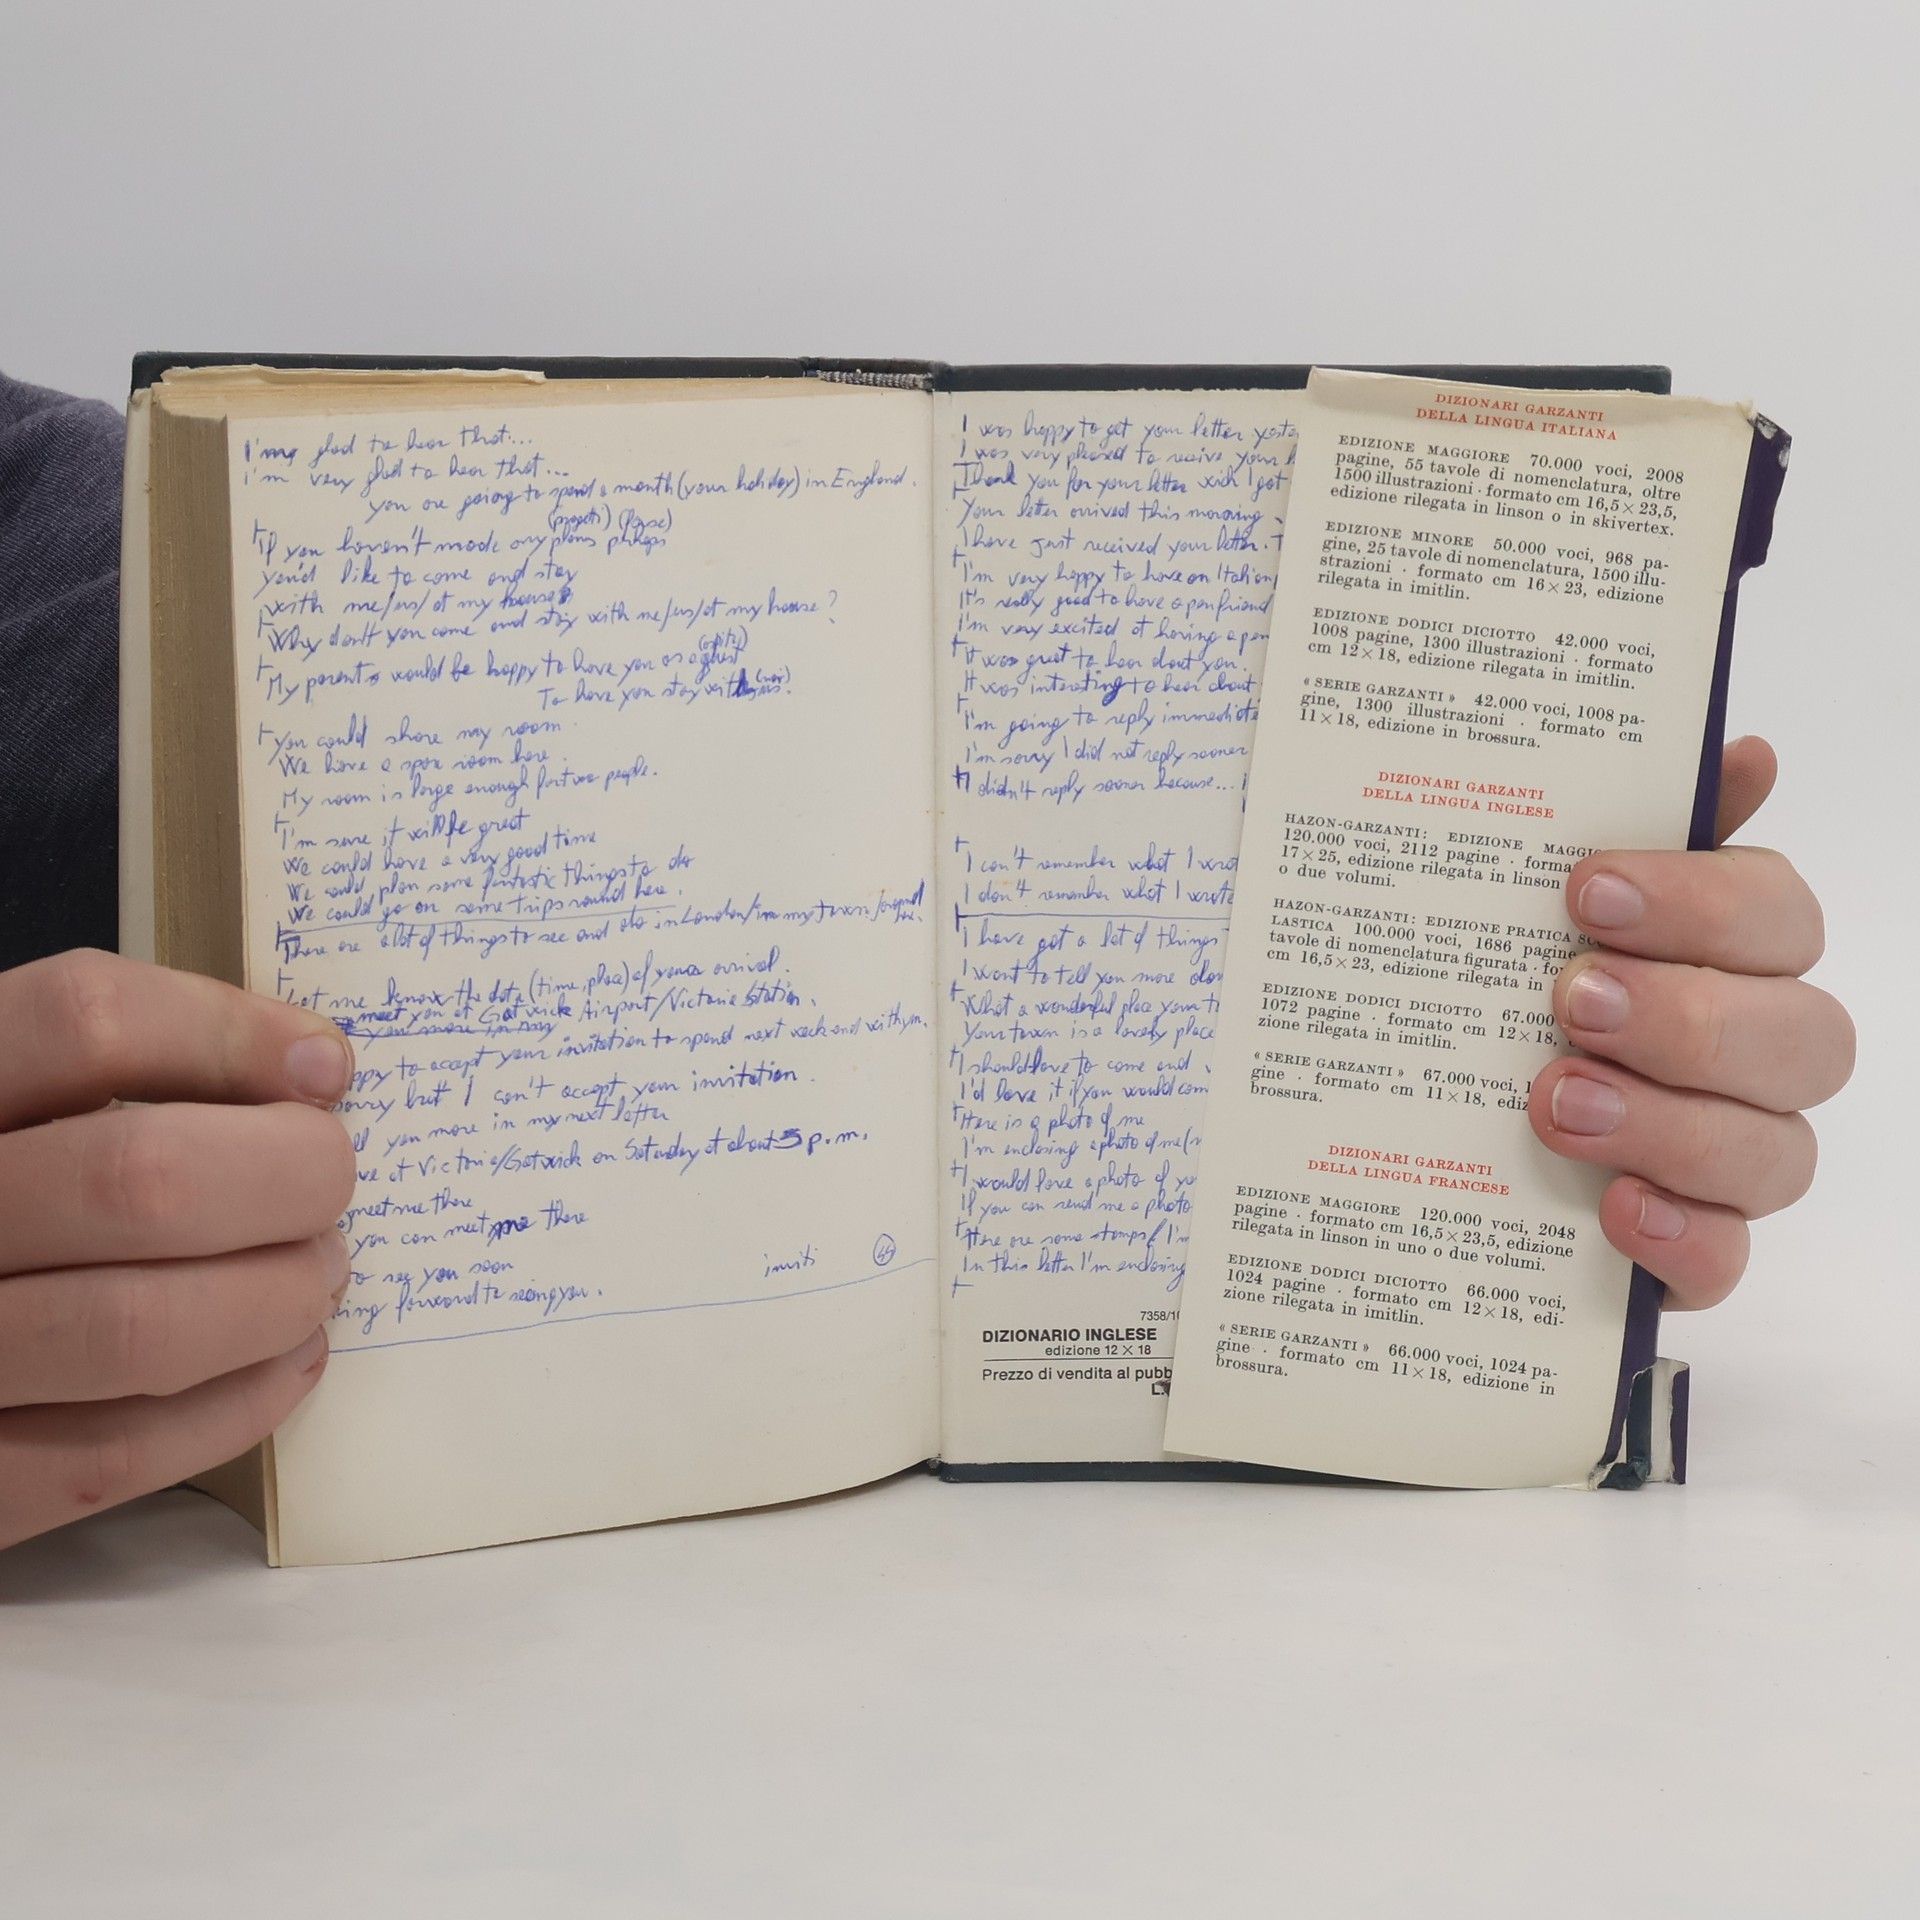 I'm glad to hear that...
I'm very glad to hear that...
you are going to spend a month (your holiday) in England.
(progetti) (forse)
If you haven't made any plans perhaps
you'd like to come and stay
with me/us/at my house
Why don't you come and stay with me/us/at my house?
(ospite)
My parents would be happy to have you as a guest
To have you stay with us. (noi)
You could share my room
We have a spare room here.
My room is large enough for two people.
I'm sure it will be great
We could have a very good time
We could plan some fantastic things to do
We could go on some trips round here.
There are a lot of things to see and do in London/in my town/around
here.
Let me know the date (time, place) of your arrival.
meet you at Gatwick Airport/Victoria Station.
you more in my
ppy to accept your invitation to spend next week-end with you.
sorry but I can't accept your invitation.
ll you more in my next letter
ive at Victoria/Gatwick on Saturday at about 5 p.m.
meet me there
you can meet me there
to see you soon
king forward to seeing you.
inviti
I was happy to get your letter yeste
I was very pleased to receive your l
Thank you for your letter wich I got
Your letter arrived this morning
I have just received your letter. T
I'm very happy to have an Italian
It's really good to have a penfriend
I'm very excited at having a pen
It was great to hear about you.
It was interating to hear about
I'm going to reply immediate
I'm sorry I did not reply sooner
I didn't reply sooner because...
I can't remember what I wrot
I don't remember what I wrote
I have got a lot of things
I want to tell you more abou
What a wonderful place your t
Your town is a lovely place
I should love to come and
I'd love it if you would com
Here is a photo of me
I'm enclosing a photo of me (
I would love a photo of yo
If you can send me a photo
Here are some stamps/ I'm
In this letter I'm enclosing
7358/10
DIZIONARIO INGLESE
edizione 12 × 18
Prezzo di vendita al pubb
L.
DIZIONARI GARZANTI
DELLA LINGUA ITALIANA
EDIZIONE MAGGIORE 70.000 voci, 2008
pagine, 55 tavole di nomenclatura, oltre
1500 illustrazioni · formato cm 16,5 × 23,5,
edizione rilegata in linson o in skivertex.
EDIZIONE MINORE 50.000 voci, 968 pa-
gine, 25 tavole di nomenclatura, 1500 illu-
strazioni · formato cm 16 × 23, edizione
rilegata in imitlin.
EDIZIONE DODICI DICIOTTO 42.000 voci,
1008 pagine, 1300 illustrazioni · formato
cm 12 × 18, edizione rilegata in imitlin.
« SERIE GARZANTI » 42.000 voci, 1008 pa-
gine, 1300 illustrazioni · formato cm
11 × 18, edizione in brossura.
DIZIONARI GARZANTI
DELLA LINGUA INGLESE
HAZON-GARZANTI: EDIZIONE MAGGIO
120.000 voci, 2112 pagine · forma
17 × 25, edizione rilegata in linson
o due volumi.
HAZON-GARZANTI: EDIZIONE PRATICA SCO
LASTICA 100.000 voci, 1686 pagine
tavole di nomenclatura figurata · for
cm 16,5 × 23, edizione rilegata in
EDIZIONE DODICI DICIOTTO 67.000
1072 pagine · formato cm 12 × 18,
zione rilegata in imitlin.
« SERIE GARZANTI » 67.000 voci, 1
gine · formato cm 11 × 18, ediz
brossura.
DIZIONARI GARZANTI
DELLA LINGUA FRANCESE
EDIZIONE MAGGIORE 120.000 voci, 2048
pagine · formato cm 16,5 × 23,5, edizione
rilegata in linson in uno o due volumi.
EDIZIONE DODICI DICIOTTO 66.000 voci,
1024 pagine · formato cm 12 × 18, edi-
zione rilegata in imitlin.
« SERIE GARZANTI » 66.000 voci, 1024 pa-
gine · formato cm 11 × 18, edizione in
brossura.